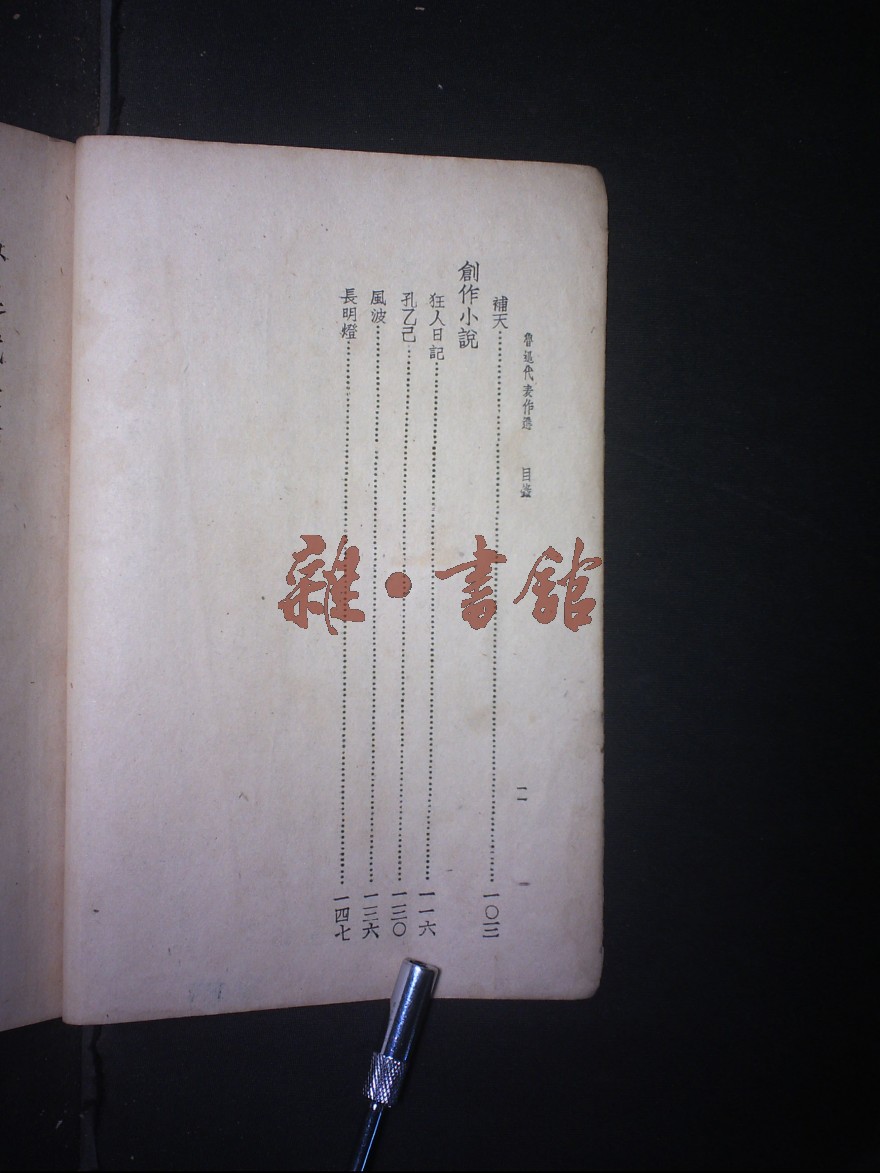 魯迅代表作選 目錄 二
補天 一〇三
創作小說
狂人日記 一一六
孔乙己 一三〇
風波 一三六
長明燈 一四七
雜·書館